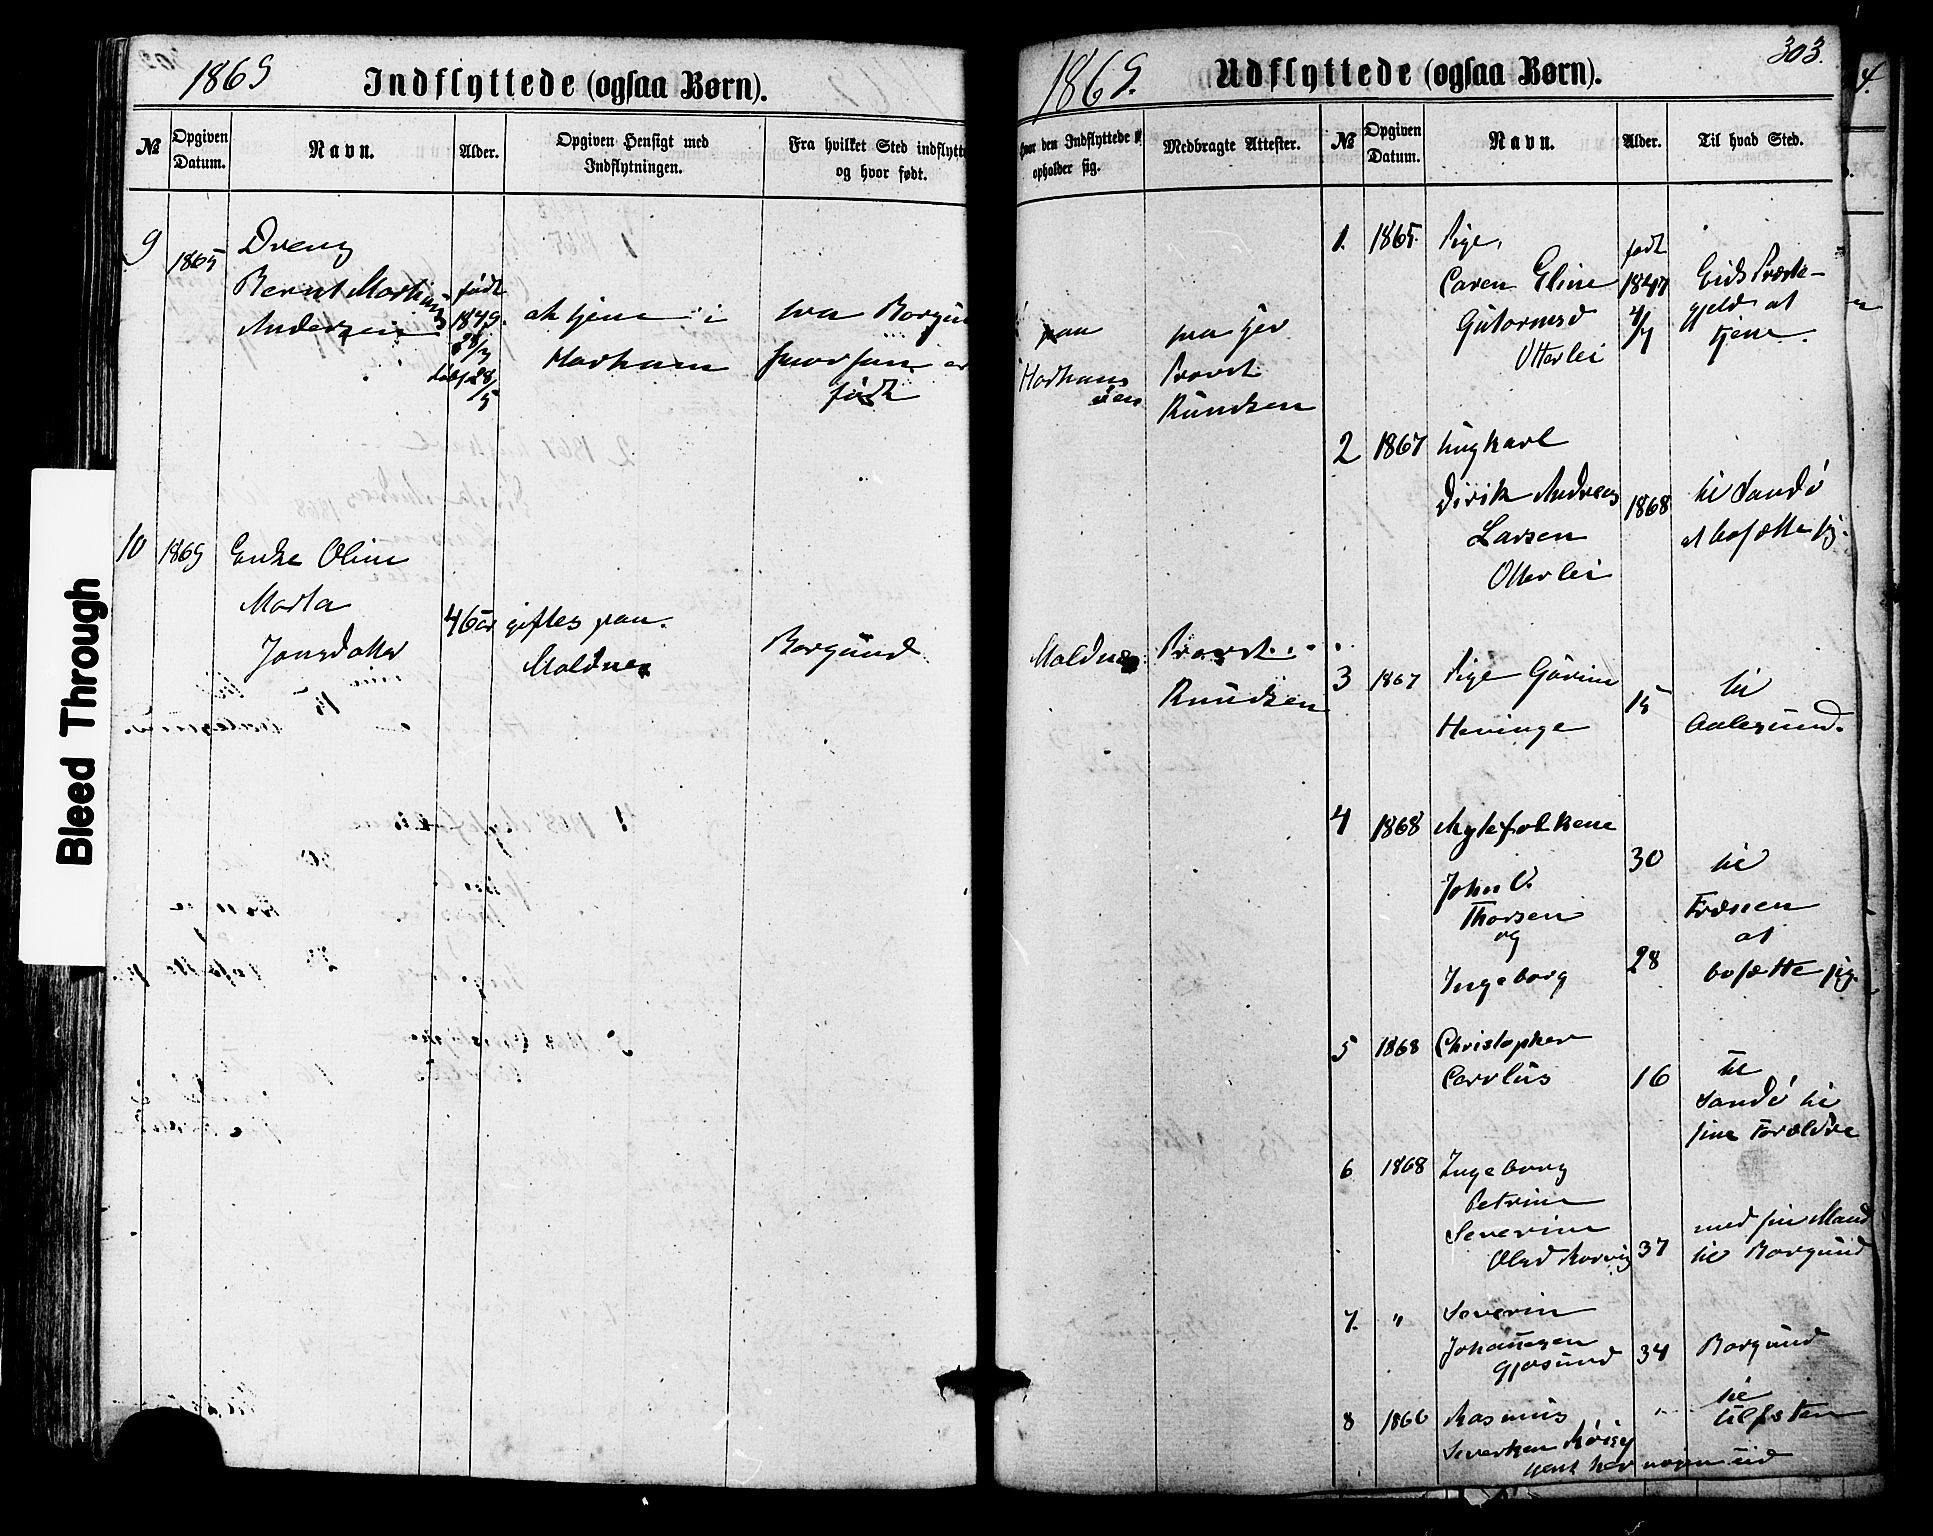 1869 Indflyttede (ogsaa Børn).
№ Opgiven Datum. Navn. Alder. Opgiven Hensigt med Indflytningen. Fra hvilket Sted indflytt og hvor født.
9 1865 Dreng
Bernt Martinus født
Andersen 1849. at tjene i fra Borgun
28/5 Harham hvor han er
født
10 1869 Enke Oline
Marta 46 år giftes paa
Jonsdatter Maldnes Borgund
1869. Udflyttede (ogsaa Børn). 303.
hvor den Indflyttede opholder sig. Medbragte Attester. № Opgiven Datum. Navn. Alder. Til hvad Sted.
paa fra hr
Harhams Provst
øen Knudsen
Maldnes Provst
Knudsen
1. 1865. Pige, født
Caren Eline 1847 Eids Præste-
Gutormsd 4/7 gjeld at
Otterlei tjene.
2 1867 Ungkarl
Dirik Andreas 1868 til Sandø
Larsen at bosætte sig.
Otterlei
3 1867 Pige Gurine 15 til
Hevinge Aalesund.
4 1868 Ægtefolkene
John O. 30 til
Thorsen Frænen
og at
Ingeborg 28 bosætte sig.
5 1868 Christopher
Carolus 16 til
Sandø til
sine Forældre
6 1868 Ingeborg
Petrine
Severine med sin Mand
Olsd 37 til Borgund
7. " Severin
Johannesen
Gjøsund 34 Borgund
8 1866 Rasmus " til
Seversen Ulfsten
Bleed Through